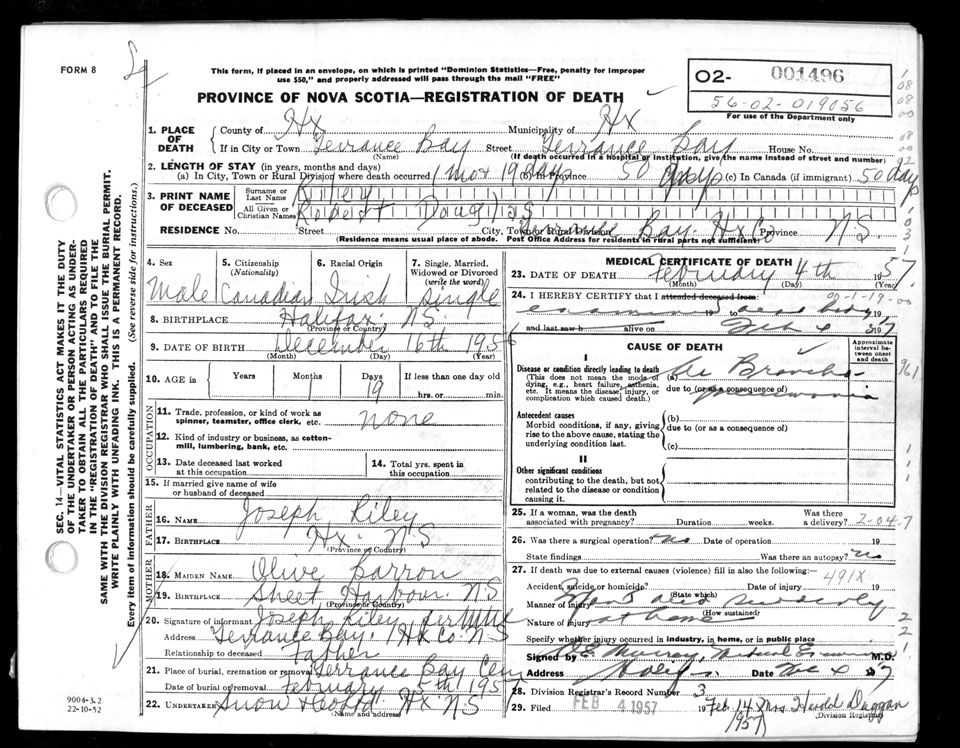 FORM 8
This form, if placed in an envelope, on which is printed "Dominion Statistics—Free, penalty for improper
use $50," and properly addressed will pass through the mail "FREE"
02- 001496
56-02-019056
For use of the Department only
PROVINCE OF NOVA SCOTIA—REGISTRATION OF DEATH
1. PLACE OF DEATH
County of Hx Municipality of Hx
If in City or Town Terrance Bay Street Terrance Bay House No.
(Name) (If death occurred in a hospital or institution, give the name instead of street and number)
2. LENGTH OF STAY (in years, months and days)
(a) In City, Town or Rural Division where death occurred 1 Mo + 19 days (b) in Province 50 days (c) In Canada (if immigrant) 50 days
3. PRINT NAME OF DECEASED
Surname or Last Name Riley
All Given or Christian Names Robert Douglas
RESIDENCE No. Street City, Town or Rural Division Terrance Bay Hx Co Province N S.
(Residence means usual place of abode. Post Office Address for residents in rural parts not sufficient)
4. Sex 5. Citizenship (Nationality) 6. Racial Origin 7. Single, Married, Widowed or Divorced (write the word)
Male Canadian Irish Single
8. BIRTHPLACE Halifax N S
(Province or Country)
9. DATE OF BIRTH December 16th 1956
(Month) (Day) (Year)
10. AGE in Years Months Days If less than one day old
19 hrs. or min.
OCCUPATION
11. Trade, profession, or kind of work as
spinner, teamster, office clerk, etc. none
12. Kind of industry or business, as cotton-
mill, lumbering, bank, etc.
13. Date deceased last worked
at this occupation
14. Total yrs. spent in
this occupation
15. If married give name of wife
or husband of deceased
FATHER
16. NAME Joseph Riley
17. BIRTHPLACE Hx. N S
(Province or Country)
MOTHER
18. MAIDEN NAME Olive Barron
19. BIRTHPLACE Sheet Harbour N S
(Province or Country)
20. Signature of informant Joseph Riley
Address Terrance Bay. Hx Co. N S
Relationship to deceased Father
21. Place of burial, cremation or removal Terrance Bay Cem
Date of burial or removal February 5th 1957
22. UNDERTAKER Snow Hx N S
(Name and address)
MEDICAL CERTIFICATE OF DEATH
23. DATE OF DEATH February 4th 1957
(Month) (Day) (Year)
24. I HEREBY CERTIFY that I attended deceased from: 00-1-19-00
examined dead body 19 to 19
and last saw h alive on Feb 4 1957
CAUSE OF DEATH
Approximate interval between onset and death
I
Disease or condition directly leading to death
(This does not mean the mode of
dying, e.g., heart failure, asthenia,
etc. It means the disease, injury, or
complication which caused death.)
(a) Broncho-
due to (or as a consequence of) pneumonia
Antecedent causes
Morbid conditions, if any, giving
rise to the above cause, stating the
underlying condition last.
(b)
due to (or as a consequence of)
(c)
II
Other significant conditions
contributing to the death, but not
related to the disease or condition
causing it.
25. If a woman, was the death
associated with pregnancy? Duration weeks. Was there
a delivery? 2-04-7
26. Was there a surgical operation? no Date of operation 19
State findings Was there an autopsy? no
27. If death was due to external causes (violence) fill in also the following:—
491X
Accident, suicide or homicide? Date of injury 19
(State which)
Manner of injury died suddenly
(How sustained)
Nature of injury at home
Specify whether injury occurred in industry, in home, or in public place
Signed by Murray, Medical Examiner M.D.
Address Halifax Date Feb 4 1957
28. Division Registrar's Record Number 3
29. Filed FEB 4 1957 19 Feb 14 1957 Mrs Harold Duggan
(Division Registrar)
SEC. 14—VITAL STATISTICS ACT MAKES IT THE DUTY
OF THE UNDERTAKER OR PERSON ACTING AS UNDER-
TAKER TO OBTAIN ALL THE PARTICULARS REQUIRED
IN THE "REGISTRATION OF DEATH" AND TO FILE THE
SAME WITH THE DIVISION REGISTRAR WHO SHALL ISSUE THE BURIAL PERMIT.
WRITE PLAINLY WITH UNFADING INK. THIS IS A PERMANENT RECORD.
Every item of information should be carefully supplied. (See reverse side for instructions.)
9004-3.2
22-10-52